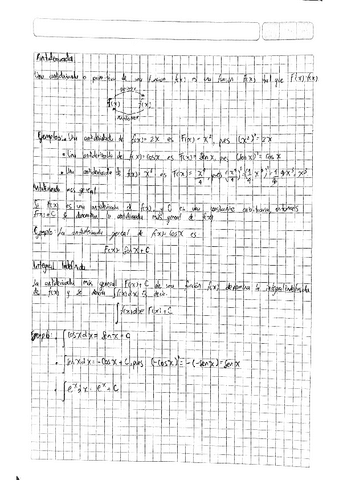 Antiderivada
Una antiderivada o primitiva de una función f(x), es una función F(x) tal que F'(x)=f(x)
F(x) f(x)
Ejemplos: • Una antiderivada de f(x)=2x es F(x)=x², pues (x²)'=2x
• Una antiderivada de f(x)=cosx es F(x)=senx, pues (senx)'=cosx
• Una antiderivada de f(x)=x³ es F(x)=x⁴/4, pues (x⁴/4)'=(1/4 x⁴)'=1/4 4x³=x³
Antiderivada más general
Si F(x) es una antiderivada de f(x) y C es una constante arbitraria, entonces
F(x)+C se denomina la antiderivada más general de f(x)
Ejemplo: La antiderivada general de f(x)=cosx es
F(x)=senx+C
Integral Indefinida
La antiderivada más general F(x)+C de una función f(x) denomina la integral indefinida
de f(x) y se denota ∫f(x)dx Es decir
∫f(x)dx=F(x)+C
Ejemplo: • ∫cosxdx=senx+C
• ∫senxdx=-cosx+C, pues (-cosx)'=-(-senx)=senx
• ∫eˣdx=eˣ+C